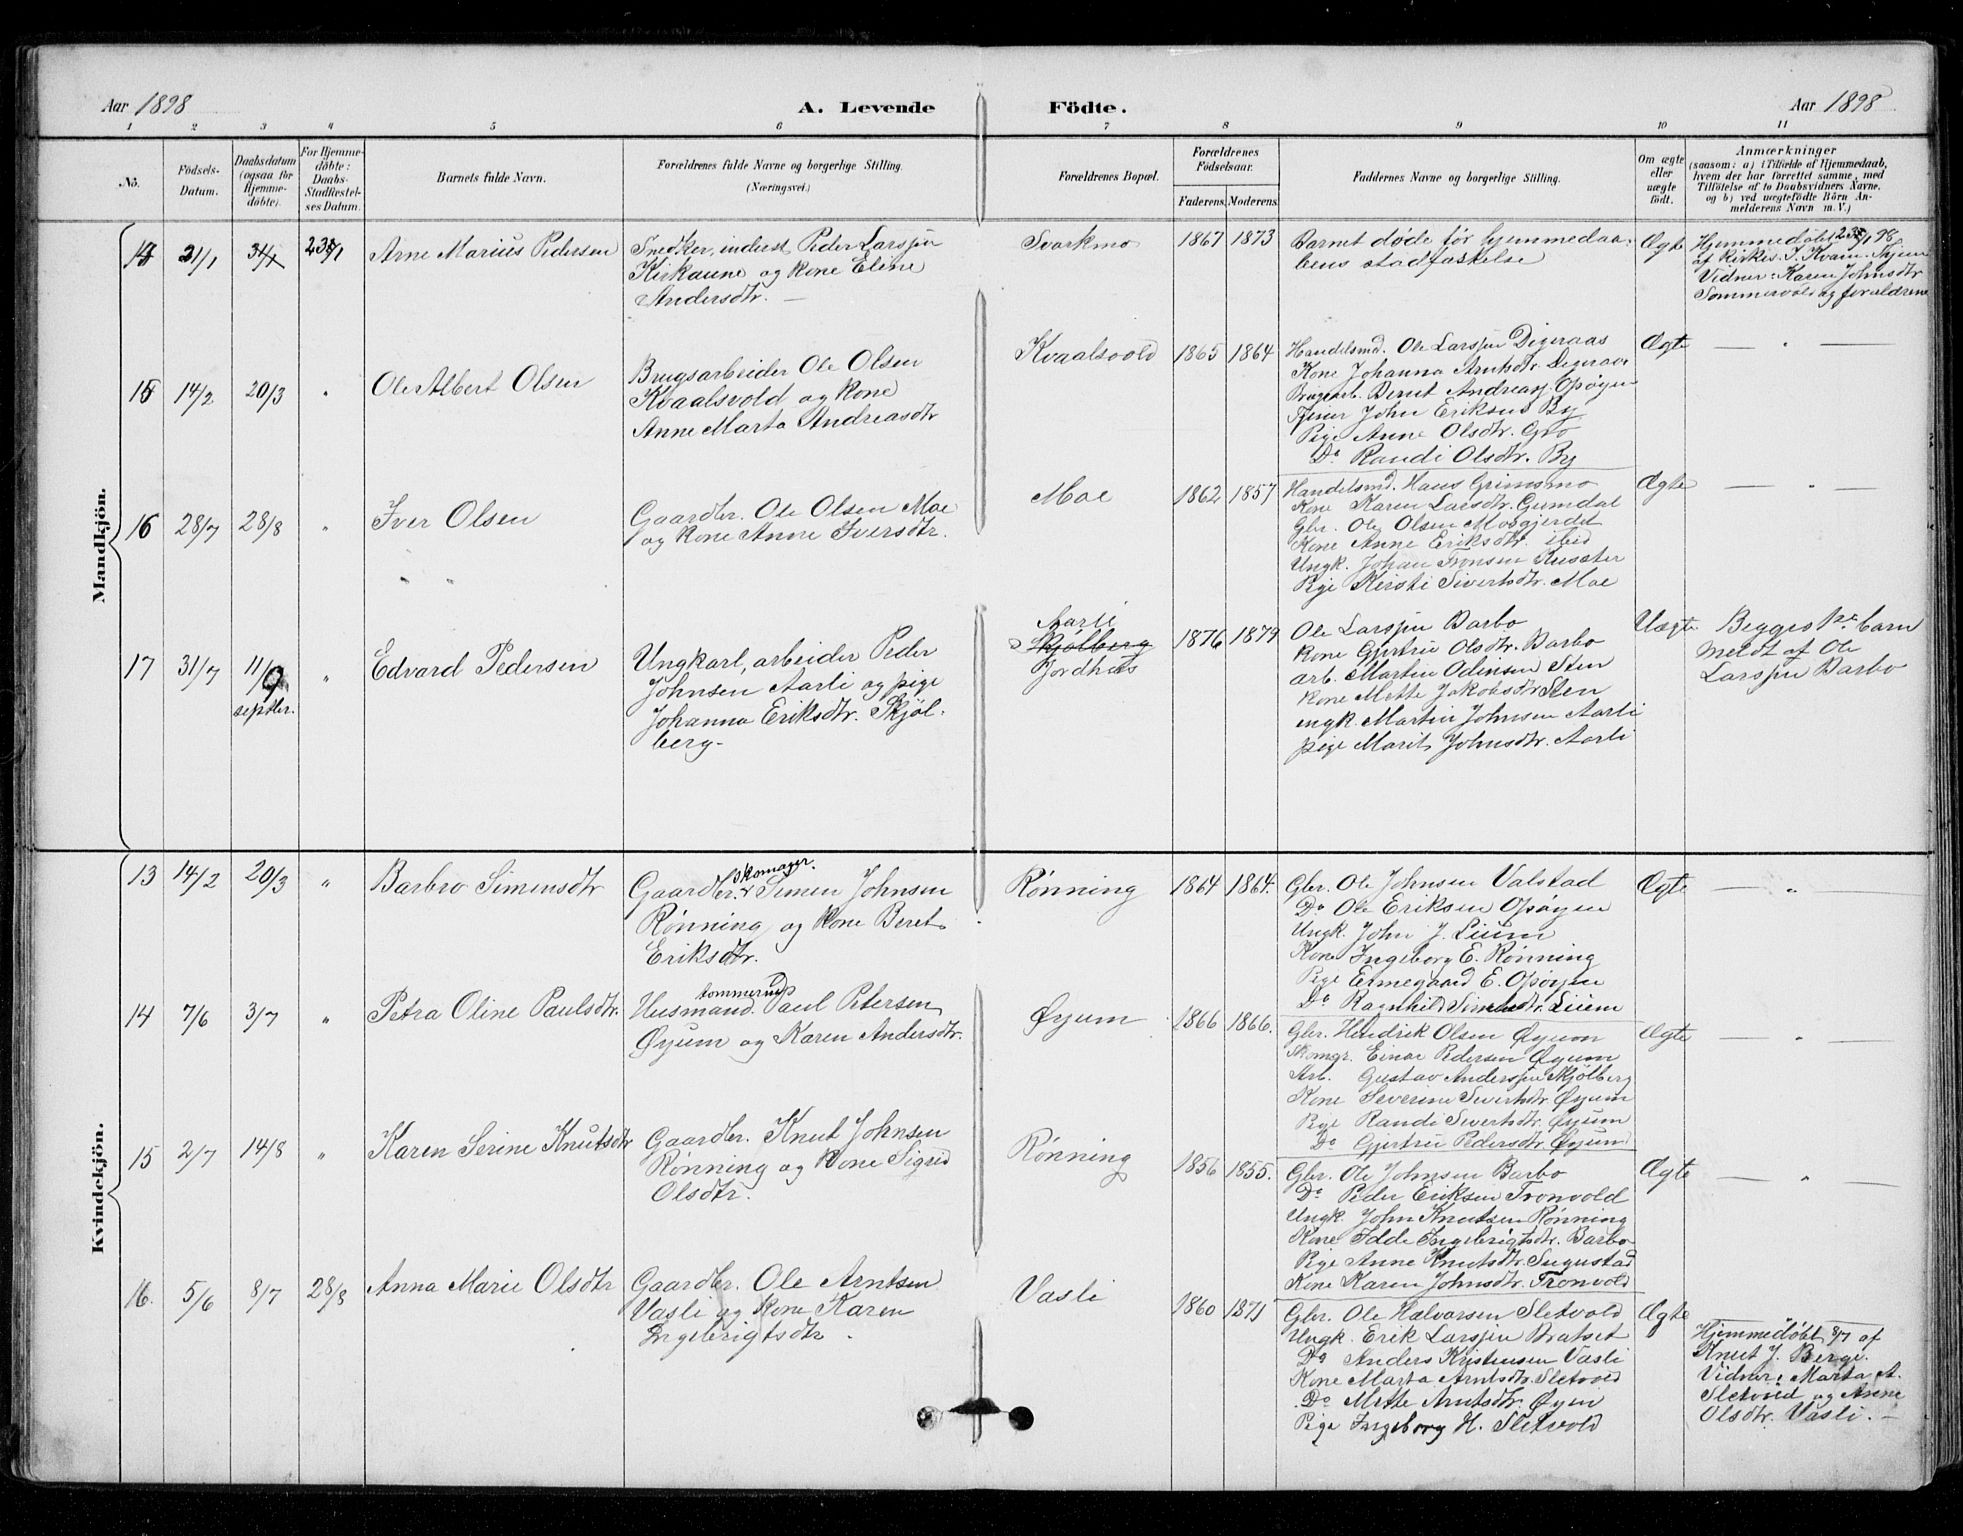 Aar 1898
A. Levende
Födte.
Aar 1898
1 2 3 4 5 6 7 8 9 10 11
No.
Födsels-
Datum.
Daabsdatum
(ogsaa for
Hjemme-
döbte).
For Hjemme-
döbte:
Daabs-
Stadfæstel-
ses Datum.
Barnets fulde Navn.
Forældrenes fulde Navne og borgerlige Stilling.
(Næringsvei.)
Forældrenes Bopæl.
Forældrenes
Födselsaar.
Faderens. Moderens.
Faddernes Navne og borgerlige Stilling.
Om ægte
eller
uægte
födt.
Anmærkninger
(saasom: a) i Tilfælde af Hjemmedaab,
hvem der har forrettet samme, med
Tilföielse af to Daabsvidners Navne,
og b) ved uægtefödte Börn An-
melderens Navn m. V.)
Mandkjön.
14 21/1 31/1 23/1
Arne Marius Pedersen
Snedker, inderst Peder Larssen
Kirkaune og kone Eline
Andersdtr. —
Svarkmo
1867 1873
Barnet døde før hjemmedaa-
bens stadfæstelse
Ægte
Hjemmedøbt 23/1 98
af Kirkes. I. Kvam.
Vidner: Karen Johnsdtr
Sommervold og forældrene
15 14/2 20/3 "
Ole Albert Olsen
Brugsarbeider Ole Olsen
Kvaalsvold og kone
Anne Marta Andreasdtr
Kvaalsvold
1865 1864
Handelsmd. Ole Larssen Digraas
Kone Johanna Arntsdtr. Digraas
Brugsarb. Bernt Andreass. Opøyen
Tjener John Eriksen By
Pige Anne Olsdtr. Gro
Do Randi Olsdtr. By
Ægte
— " —
16 28/7 28/8 "
Iver Olsen
Gaardbr. Ole Olsen Moe
og kone Anne Iversdtr.
Moe
1862 1857
Handelsmd. Hans Grimsmo
Kone Karen Larsdtr. Gumdal
Gbr. Ole Olsen Mosgjerdet
Kone Anne Eriksdtr. ibid
Ungk. Johan Tronsen Kusæter
Pige Kirsti Sivertsdtr. Moe
Ægte
— " —
17 31/7 11/9 "
septbr.
Edvard Pedersen
Ungkarl, arbeider Peder
Johnsen Aarli og pige
Johanna Eriksdtr. Skjøl-
berg-
Aarli
Skjølberg
Jordhus
1876 1879
Ole Larssen Barbo
kone Gjertru Olsdtr. Barbo
arb. Martin Odinsen Sten
kone Mette Jakobsdtr Sten
ungk. Martin Johnsen Aarli
pige Marit Johnsdtr. Aarli
Uægte
Begges 1ste barn
Meldt af Ole
Larssen Barbo
Kvindekjön.
13 14/2 20/3 "
Barbro Simensdtr
skomager.
Gaardbr. & Simen Johnsen
Rønning og kone Beret
Eriksdtr.
Rønning
1864 1864.
Gbr. Ole Johnsen Valstad
Do Ole Eriksen Opøyen
Ungk. John J. Lium
Kone Ingeborg E. Rønning
Pige Ermegaard E. Opøyen
Do Ragnhild Simensdtr. Lium
Ægte
— " —
14 7/6 3/7 "
Petra Oline Paulsdtr.
tømmerm
Husmand. Paul Petersen
Øyum og Karen Andersdtr.
Øyum
1866 1866.
Gbr. Hendrik Olsen Øyum
Skomgr. Einar Pedersen Øyum
Arb. Gustav Anderssen Skjølberg
Kone Severine Sivertsdtr. Øyum
Pige Randi Sivertsdtr. Øyum
Do Gjertru Pedersdtr. Øyum
Ægte
— " —
15 2/7 14/8 "
Karen Serine Knutsdtr
Gaardbr. Knut Johnsen
Rønning og kone Sigrid
Olsdtr.
Rønning
1856 1855.
Gbr. Ole Johnsen Barbo
Do Peder Eriksen Tronvold
Ungk. John Knutsen Rønning
Kone Idde Ingebrigtsdtr. Barbo
Pige Anne Knutsdtr. Sugustad
Kone Karen Johnsdtr. Tronvold
Ægte
— " —
16. 5/6 8/7 28/8
Anna Marie Olsdtr
Gaardbr. Ole Arntsen
Vasli og kone Karen
Ingebrigtsdtr.
Vasli
1860 1871
Gbr. Ole Halvorsen Sletvold
Ungk. Erik Larssen Bratset
Do Anders Kristensen Vasli
Kone Marta Arntsdtr. Sletvold
Do Mette Arntsdtr. Øyum
Pige Ingeborg H. Sletvold
Ægte
Hjemmedøbt 8/7 af
Knut J. Berge.
Vidner: Marta A.
Sletvold og Anne
Olsdtr. Vasli. —